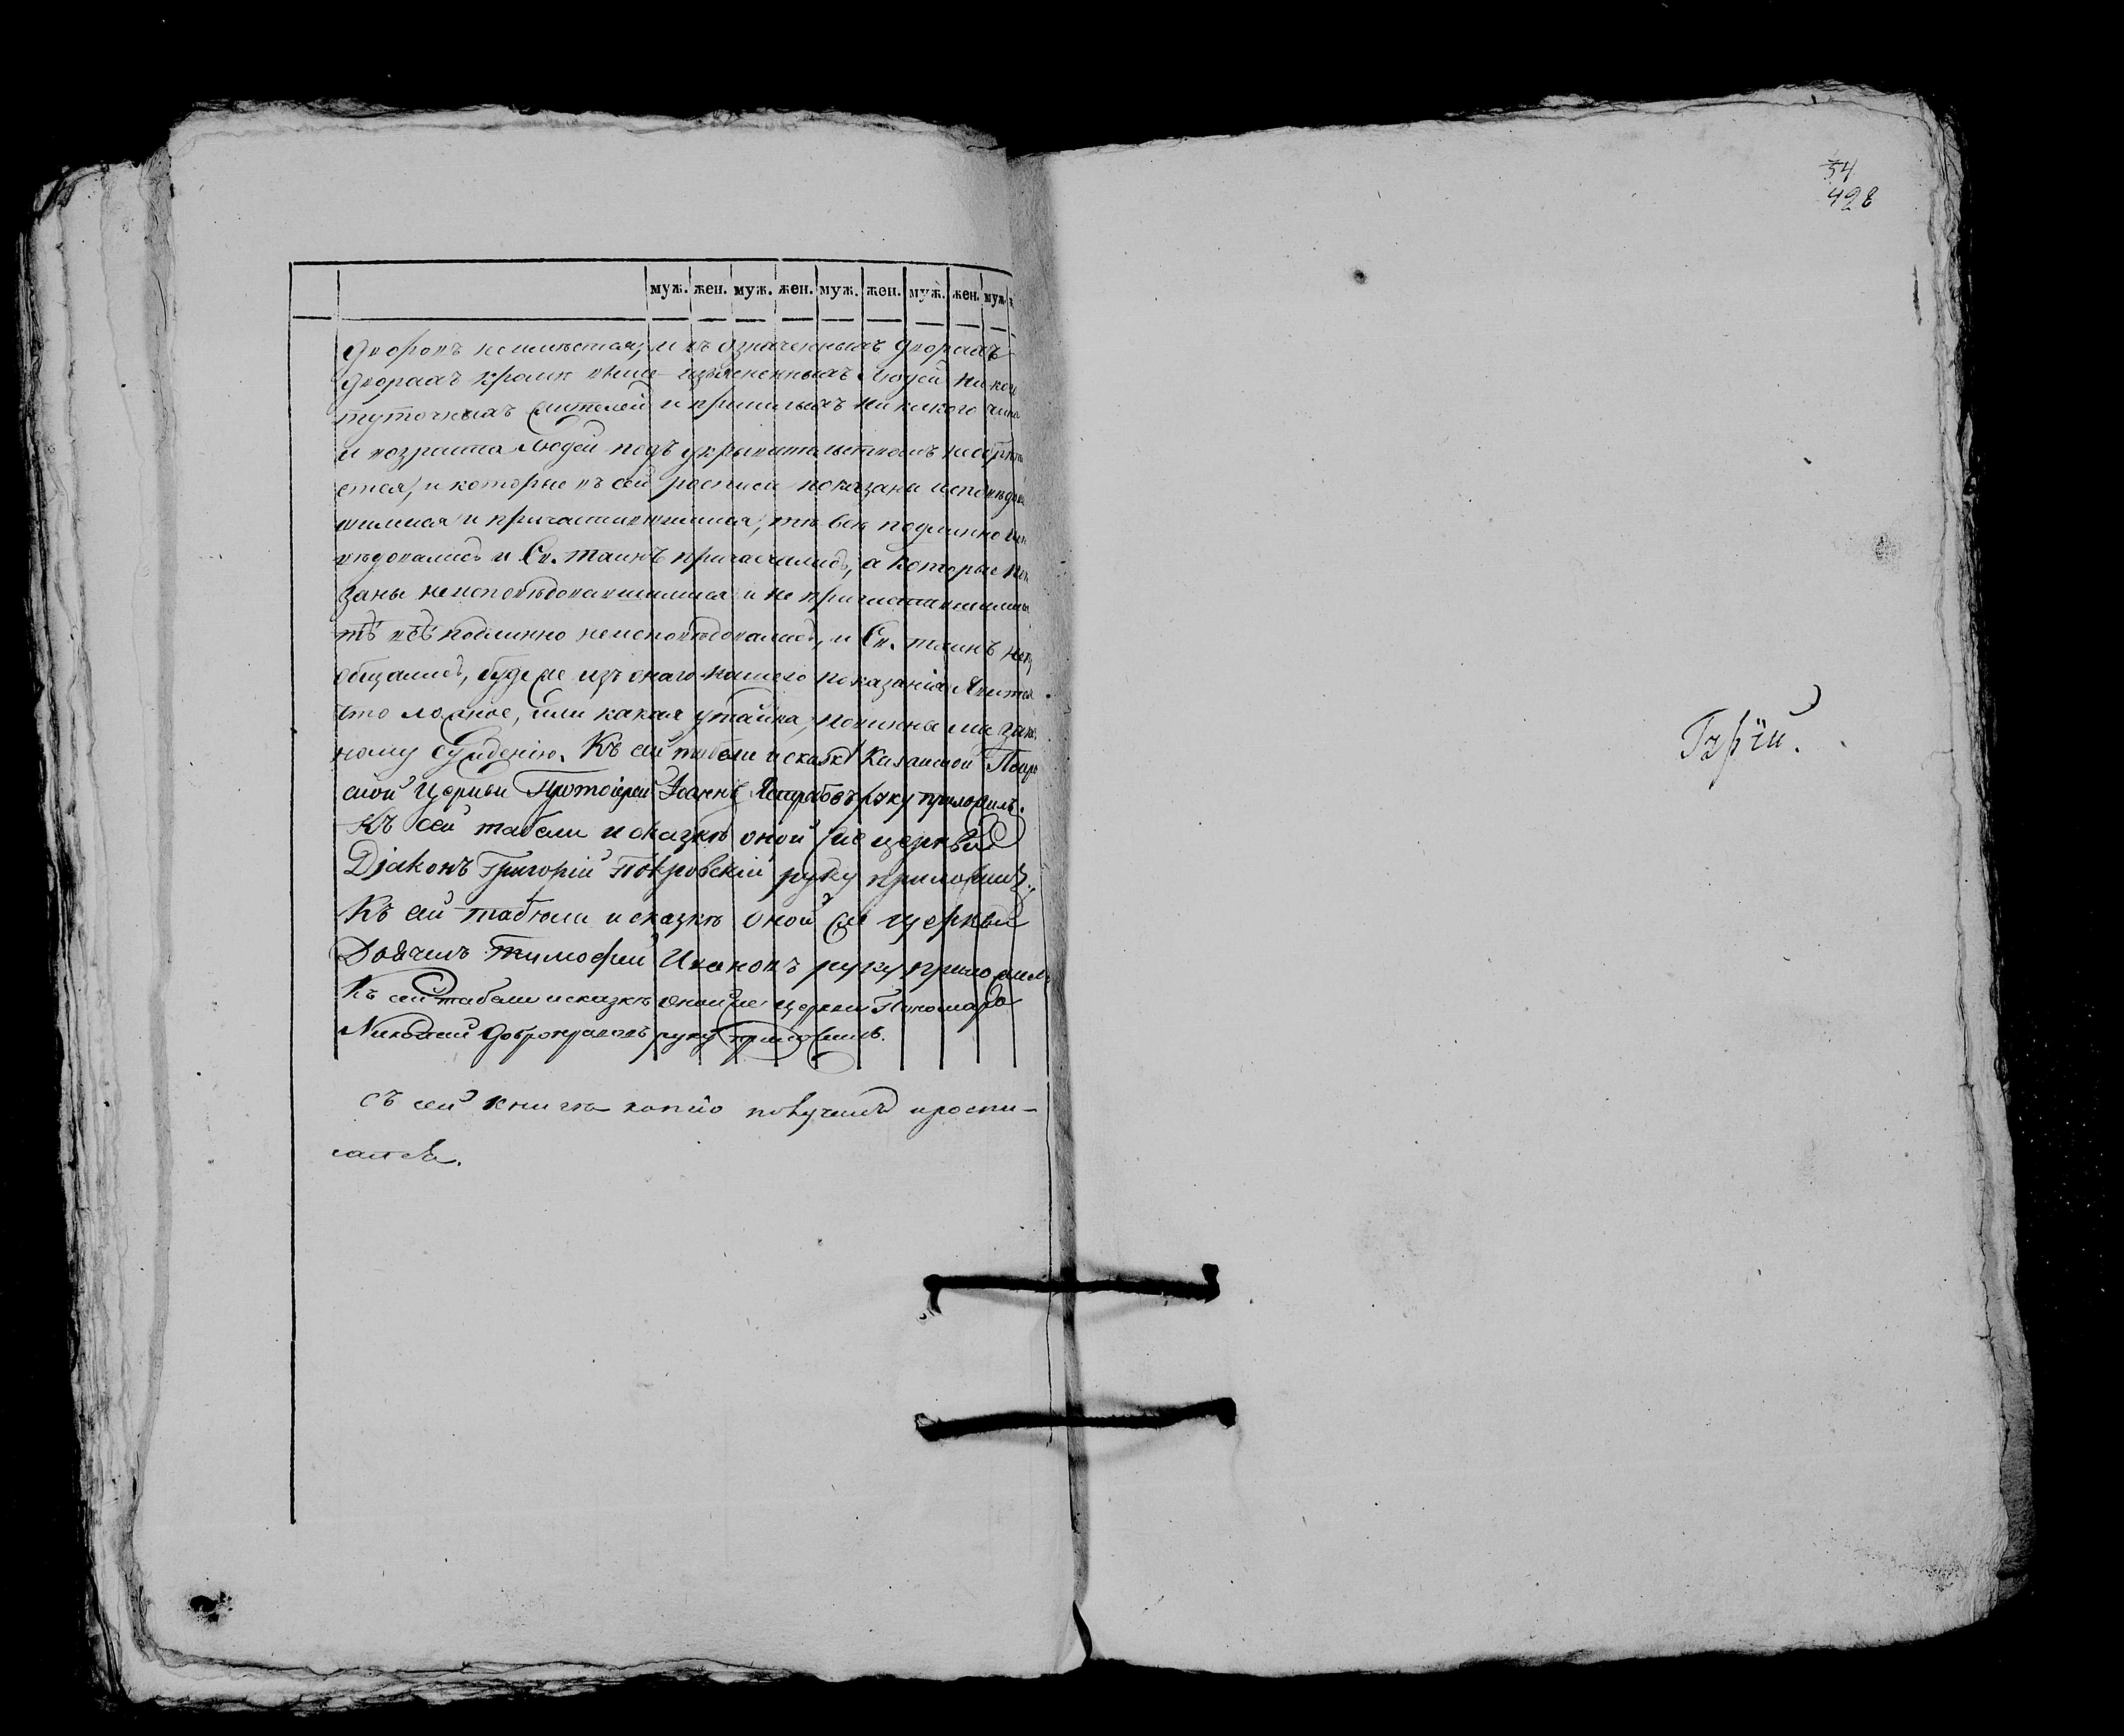 муж. жен. муж. жен. муж. жен. муж. жен. муж
дворовъ неимѣется, и въ означенныхъ дворахъ
дворахъ кромѣ выше изъясненныхъ людей ни кого
туточныхъ жителей и пришлыхъ ни какого чина
и возраста людей подъ укрывательствомъ не обрѣта
ется, и которые въ сей росписи показаны исповѣдав
шимися и причастившимися, тѣ всѣ подлинно испо
вѣдовались и Св. таинъ причащались, а которые пока
заны неисповѣдовавшимися и не причастившимися
тѣ всѣ подлинно неисповѣдовались, и Св. таинъ не
общались, буде же изъ онаго нашего показанія явится
что ложное, или какая утайка, повинны мы закон
ному сужденію. Къ сей табели и сказкѣ Казанской
ской церкви Протоіерей Іоаннъ руку приложилъ.
Къ сей табели и сказкѣ оной же церкви
Діаконъ Григорій Покровскій руку приложилъ.
Къ сей табели и сказкѣ оной же церкви
Дьячекъ Тимофей Ивановъ руку приложилъ
Къ сей табели и сказкѣ оной же церкви Пономарь
Николай Добронравовъ руку приложилъ.
съ сей книги копію получилъ и роспи-
сался.
54
428